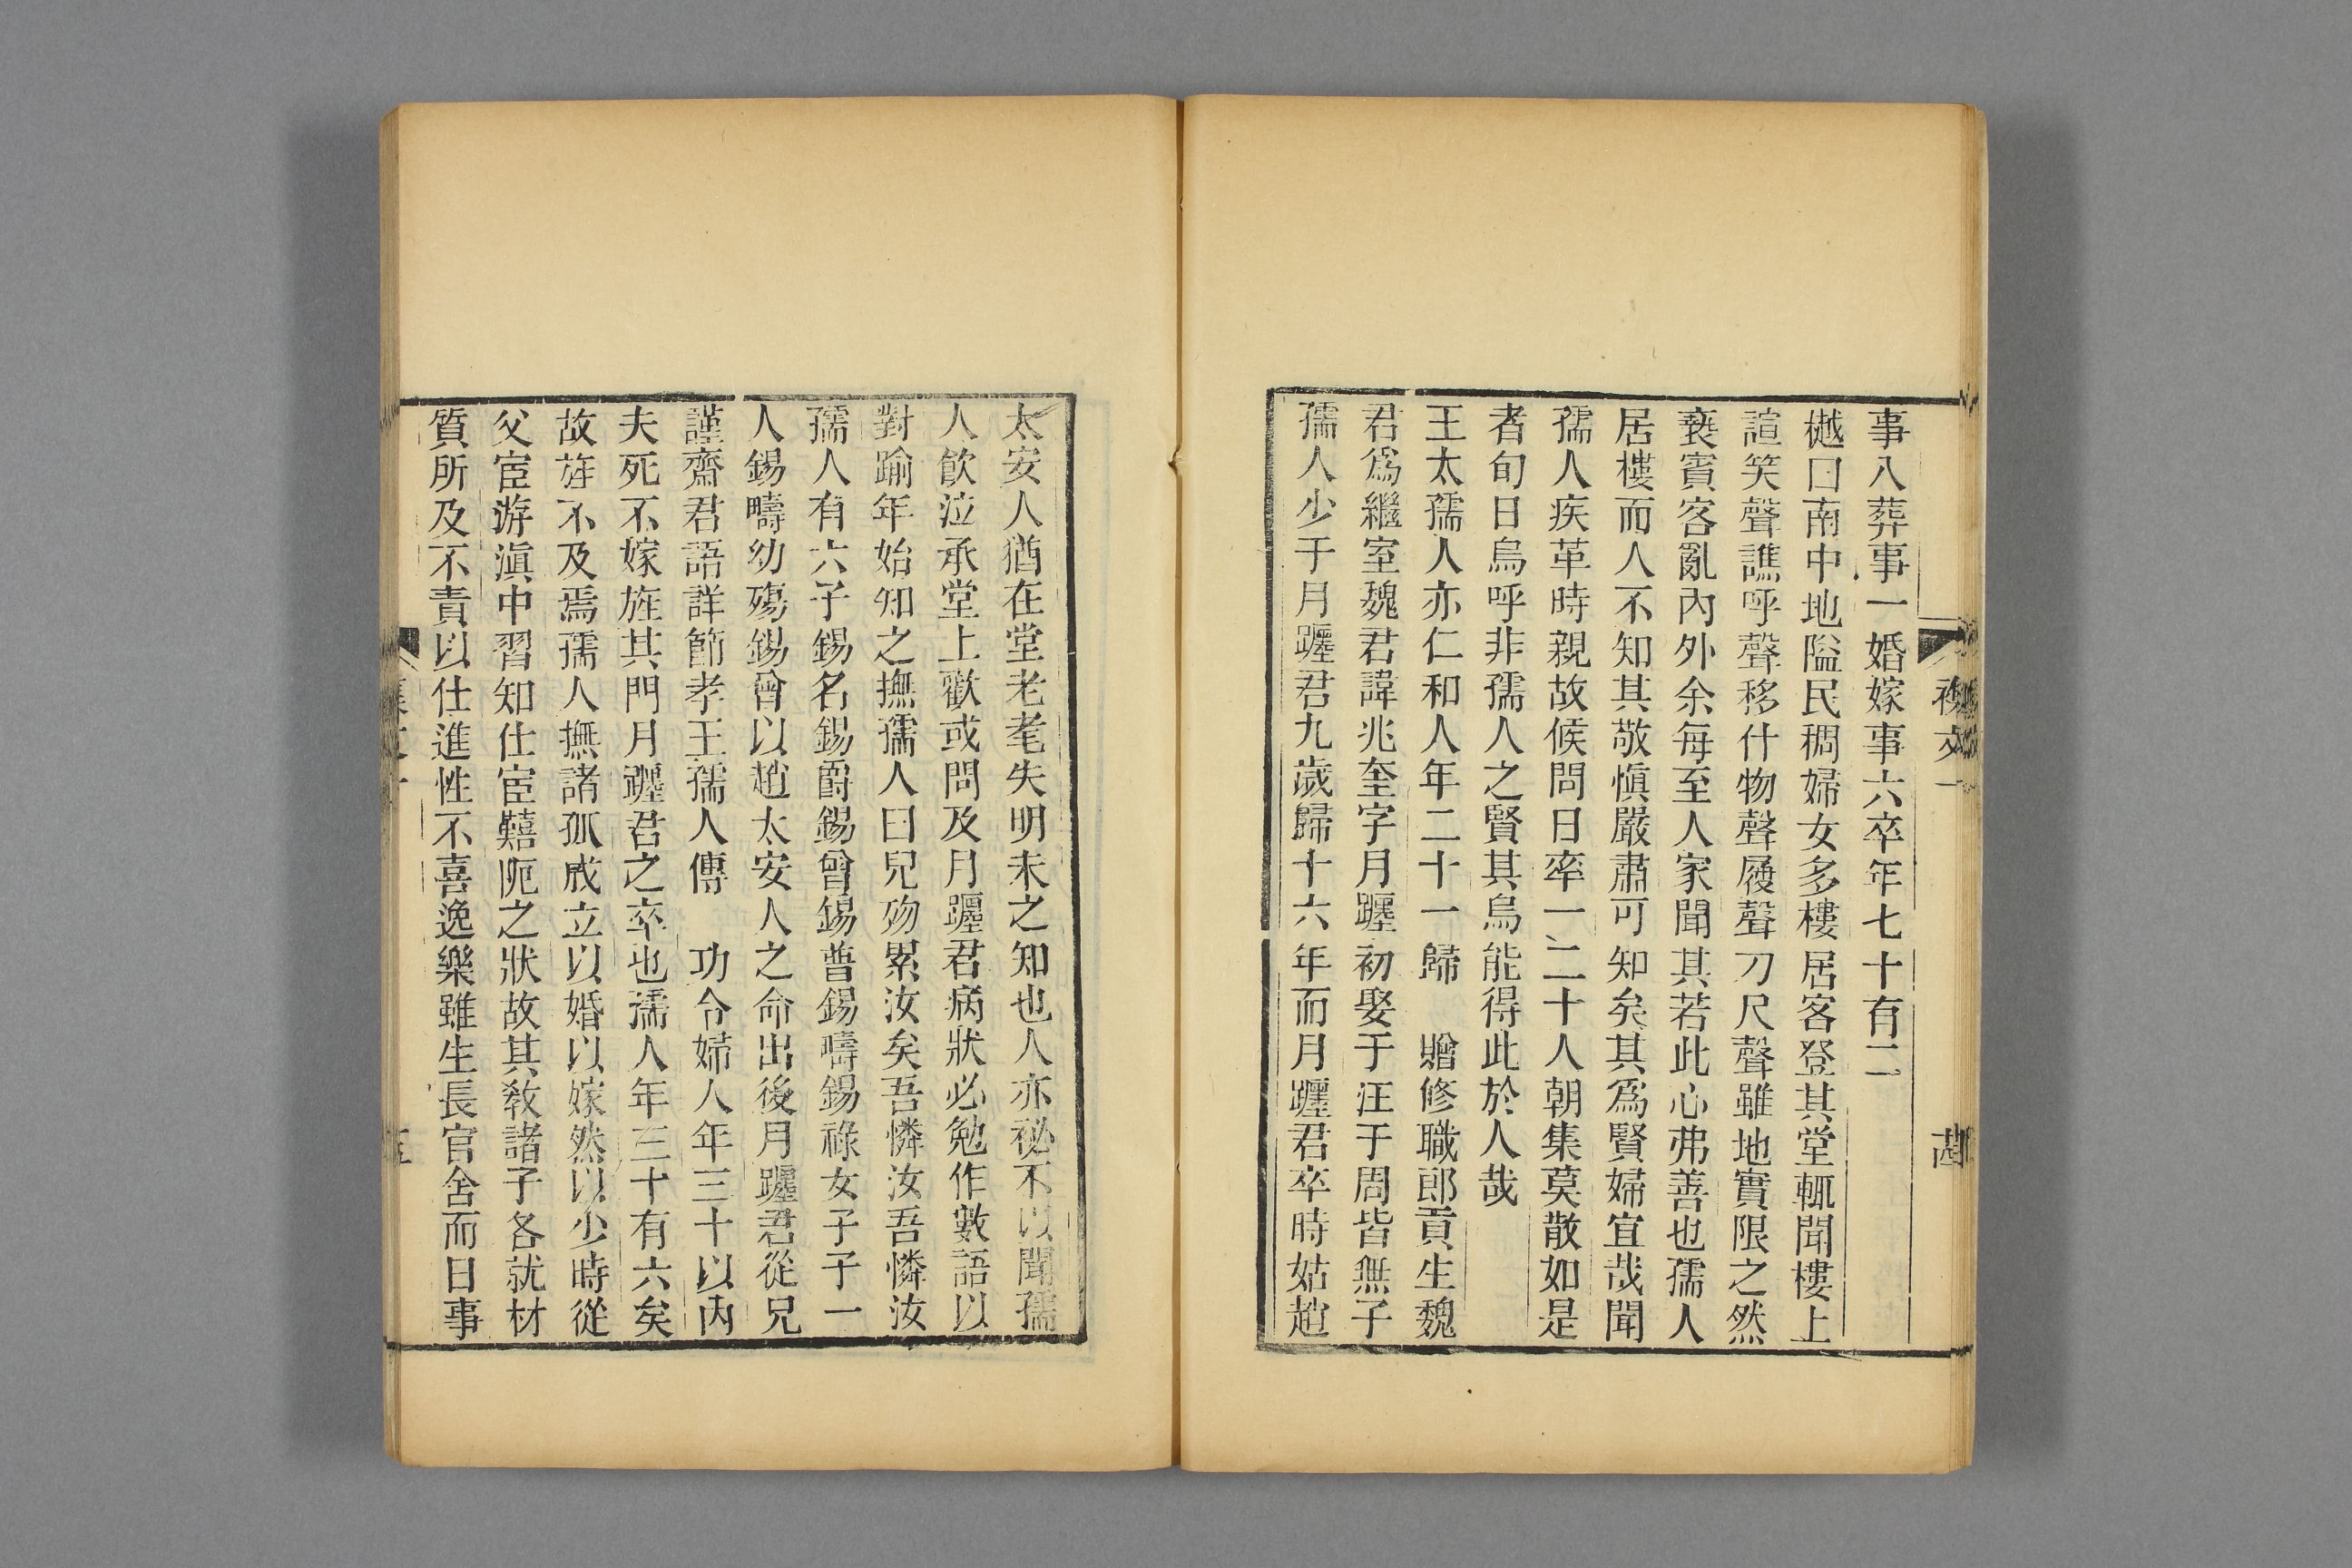 事八葬事一婚嫁事六卒年七十有二
樾曰南中地隘民稠婦女多樓居客登其堂輒聞樓上
諠笑聲譙呼聲移什物聲屐聲刀尺聲雖地實限之然
䙝賓客亂內外余每至人家聞其若此心弗善也孺人
居樓而人不知其敬愼嚴肅可知矣其爲賢婦宜哉聞
孺人疾革時親故候問日率一二十人朝集莫散如是
者旬日烏呼非孺人之賢其烏能得此於人哉
王太孺人亦仁和人年二十一歸 贈修職郎貢生魏
君爲繼室魏君諱兆奎字月躔初娶于汪于周皆無子
孺人少于月躔君九歲歸十六年而月躔君卒時姑趙
太安人猶在堂老耄失明未之知也人亦祕不以聞孺
人飮泣承堂上歡或問及月躔君病狀必勉作數語以
對踰年始知之撫孺人曰兒歿累汝矣吾憐汝吾憐汝
孺人有六子錫名錫爵錫曾錫普錫疇錫祿女子子一
人錫疇幼殤錫曾以趙太安人之命出後月躔君從兄
謹齋君語詳節孝王孺人傳 功令婦人年三十以內
夫死不嫁旌其門月躔君之卒也孺人年三十有六矣
故旌不及焉孺人撫諸孤成立以婚以嫁然以少時從
父宦游滇中習知仕宦囏阨之狀故其敎諸子各就材
質所及不責以仕進性不喜逸樂雖生長官舍而日事